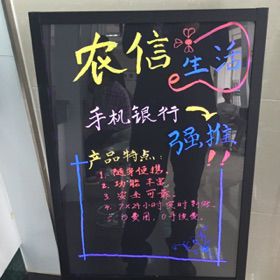 农信生活
手机银行
强推!!
产品特点:
1. 随身便携.
2. 功能丰富
3. 安全可靠.
4. 7×24小时实时到账
5. 0费用, 0手续费.